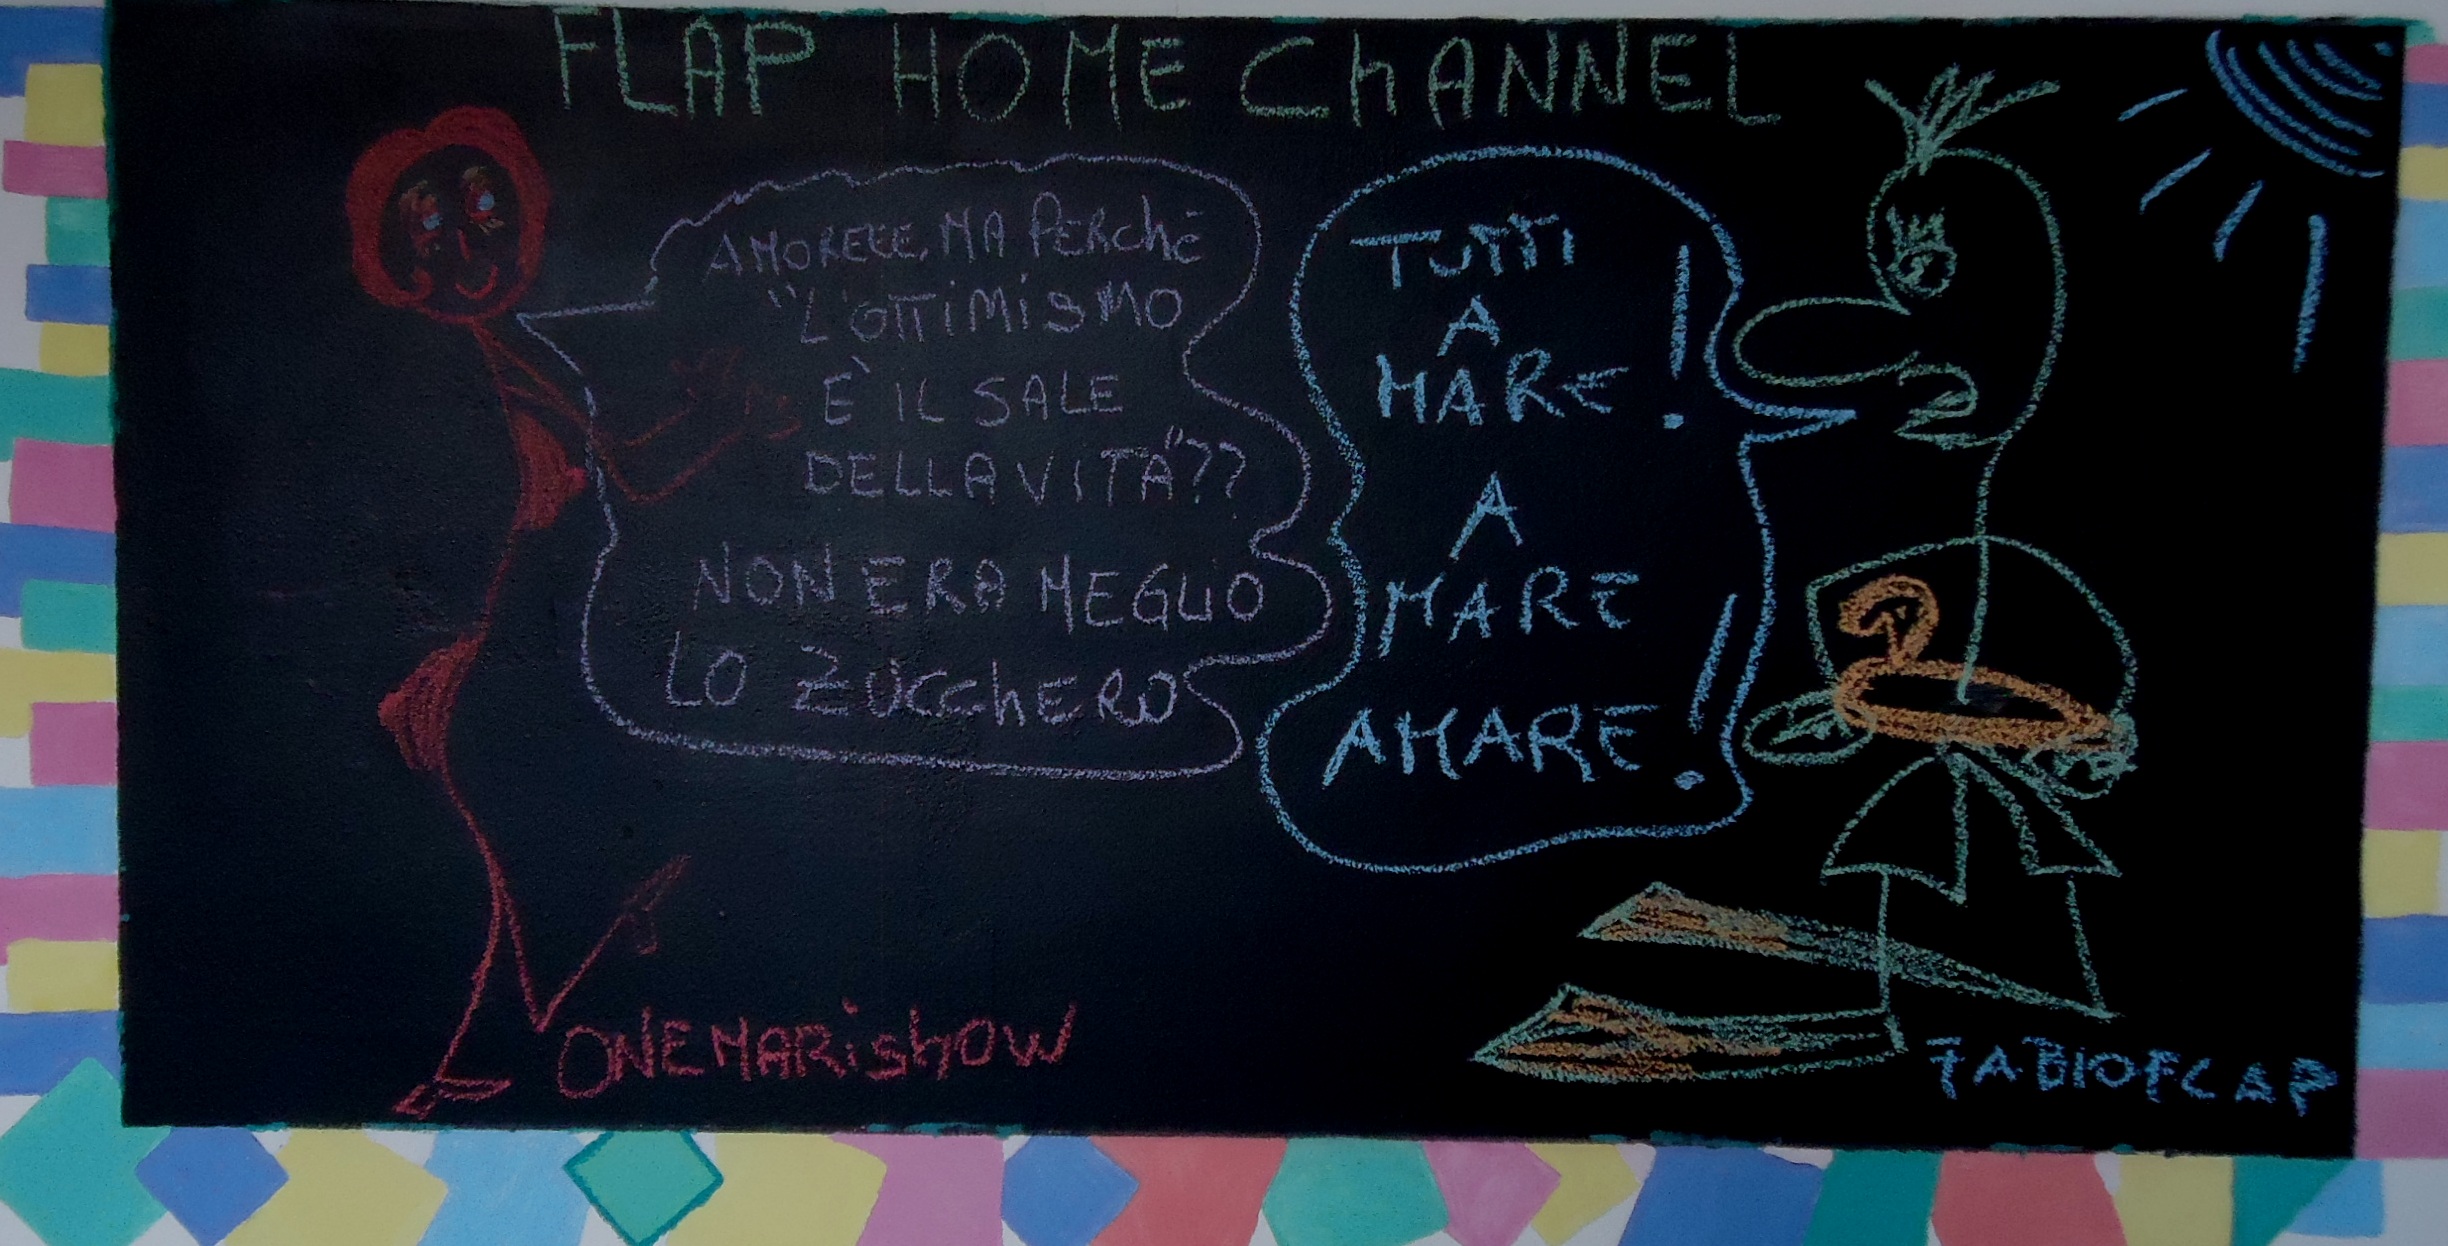 FLAP HOME ChANNEL
AMOREEE, MA PERChÈ
"L'OTTiMiSMO
È IL SALE
DELLA VITA"??
NON ERA MEGLIO
LO ZUCChERO
TUTTI
A
MARE!
A
MARE
AMARE!
ONEMARiShOW
FABIOFLAP